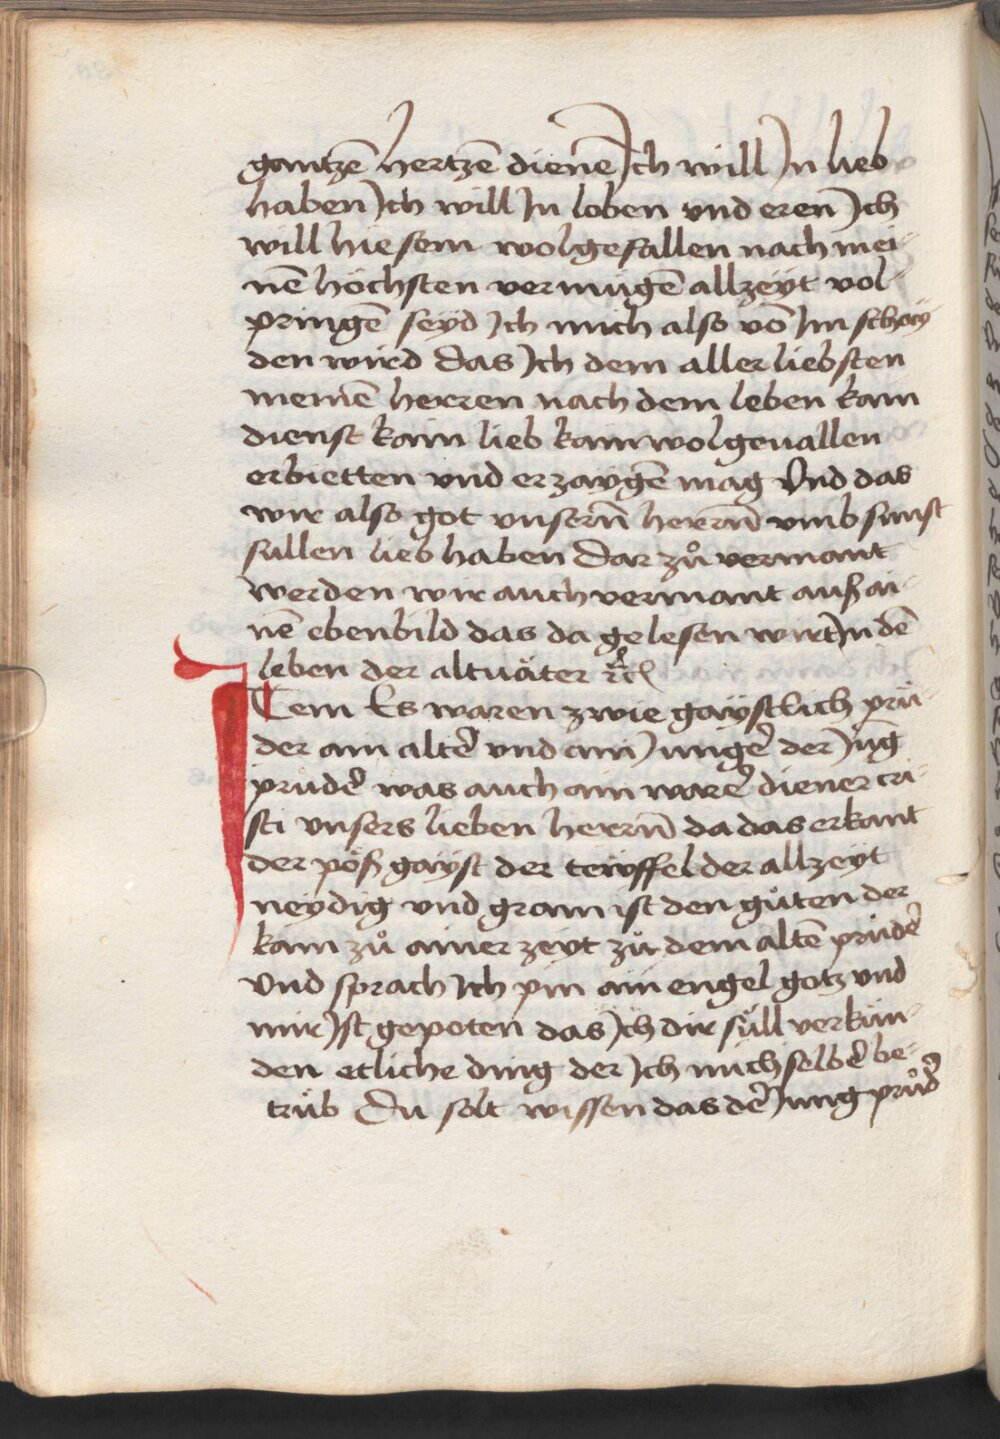 gantzē hertzē dienē Ich will In lieb
haben Ich will In loben vnd eren Ich
will hie sein wolgefallen nach mei-
nē höchsten vermügē allzeyt vol-
pringē seyd Ich mich also vō Im schay
den wird das Ich dem aller liebsten
meinē herren nach dem leben kain
dienst kain lieb kain wolgeuallen
erbietten vnd erzaygē mag Vnd das
wir also got vnsern̄ herrn̄ vmb sunst
sullen lieb haben Dar zů vermant
werden wir auch vermant auß ai-
nē ebenbild das da gelesen wirt In dē
leben der altuäter ꝛc̄
Item Es waren zwie gaystlich prü-
der ain altē vnd ain Jungē der Jūg
prudē was auch ain warē diener cri-
sti vnsers lieben herrn̄ da das erkant
der pöß gayst der teuffel der allzeyt
neydig vnd gram ist den gůten der
kam zů ainer zeyt zů dem altē prüdē
Vnd sprach Ich pin ain engel gotz vnd
mir Ist gepoten das Ich dir süll verkün-
den etliche ding der Ich mich selbē be-
trüb Du solt wissen das dē Jung průdē